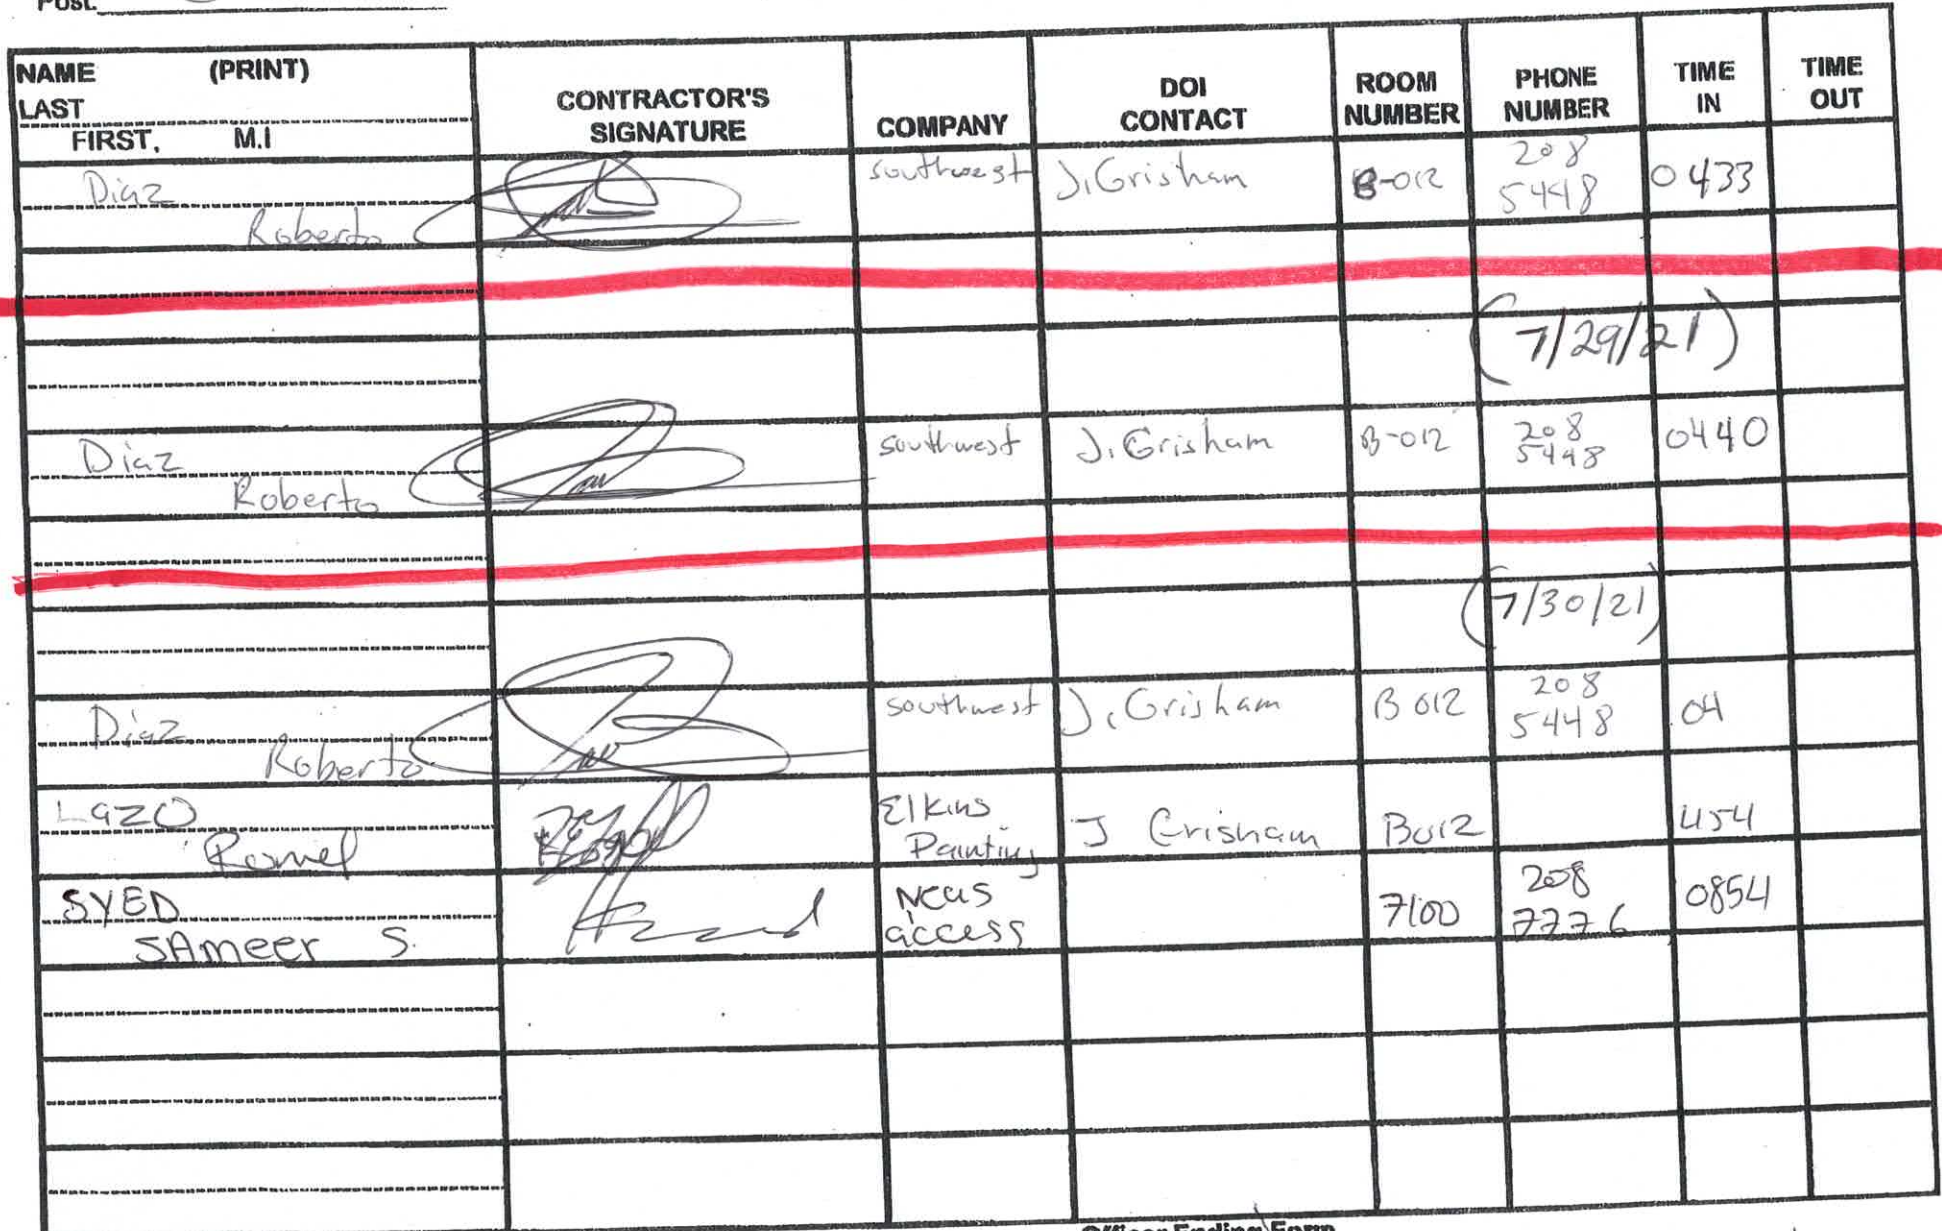 Post:
NAME (PRINT)
LAST
FIRST, M.I
CONTRACTOR'S
SIGNATURE
COMPANY
DOI
CONTACT
ROOM
NUMBER
PHONE
NUMBER
TIME
IN
TIME
OUT
Diaz
Roberto
southwest
J. Grisham
B-012
208
5448
0433
(7/29/21)
Diaz
Roberto
southwest
J. Grisham
B-012
208
5448
0440
(7/30/21)
Diaz
Roberto
southwest
J. Grisham
B 012
208
5448
04
Lazo
Romel
Elkins
Painting
J Grisham
B012
454
SYED
SAmeer S.
access
7100
208
7776
0854